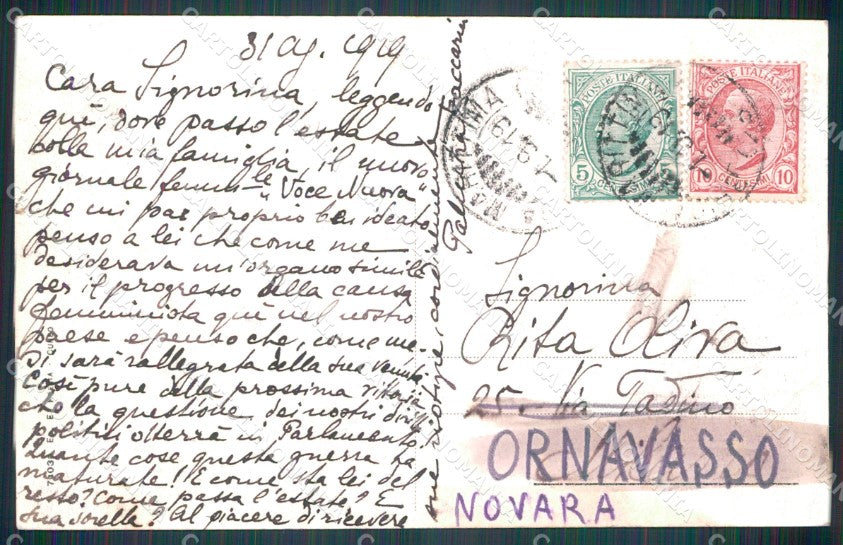 31 Ag. 1919
Cara Signorina, leggendo
quì, dove passo l'estate
colla mia famiglia il nuovo
giornale femminile "Voce Nuova"
che mi par proprio ben ideato
penso a lei che come me
desiderava un'organo simile
per il progresso della causa
femminista quì nel nostro
paese e penso che, come me
si sarà rallegrata della sua venuta
Così pure della prossima vittoria
che la questione dei nostri diritti
politici otterrà in Parlamento.
Quante cose questa guerra ha
maturate! E come sta lei del
resto? Come passa l'estate? E
sua sorella? Al piacere di ricevere
sue notizie, cordialmente
POSTE ITALIANE
5
CENTESIMI
POSTE ITALIANE
10
CENTESIMI
Signorina
Rita Oliva
25. Via Tadino
ORNAVASSO
NOVARA
CARTOLINOMANIA